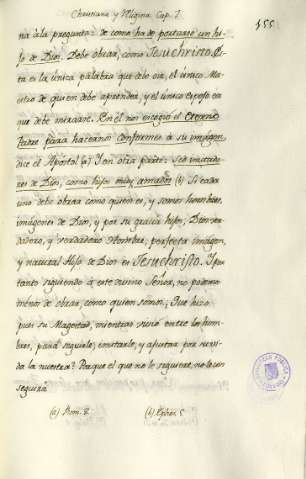 Christiana y Religiosa Cap. 1.
155
na á la pregunta: de como ha de portarse un hi-
jo de Dios. Debe obrar, como Jesuchristo. Es-
ta es la única palabra que ha de oir, el único Ma-
estro de quien debe aprender, y el único espejo en
que debe mirarse. En el nos escogió el Eterno
Padre para hacernos conformes á su imagen
dice el Apóstol (a) Y en otra parte: Sed imitado-
res de Dios, como hijos muy amados (b) Si cada
uno debe obrar como quien es, y somos hombres,
imágenes de Dios, y por su gracia hijos; Dios ver-
dadero, y verdadero Hombre, perfecta Imagen,
y natural Hijo de Dios es Jesuchristo. Y por
tanto siguiendo á este divino Señor, no podemos
menos de obrar, como quien somos. Que hizo
pues su Magestad, mientras vivió entre los hom-
bres, para seguirle, imitarle, y ajustar por su vi-
da la nuestra? Porque el que no le siguiere, no le con-
seguirá
(a) Rom. 8.
(b) Ephes. 5.